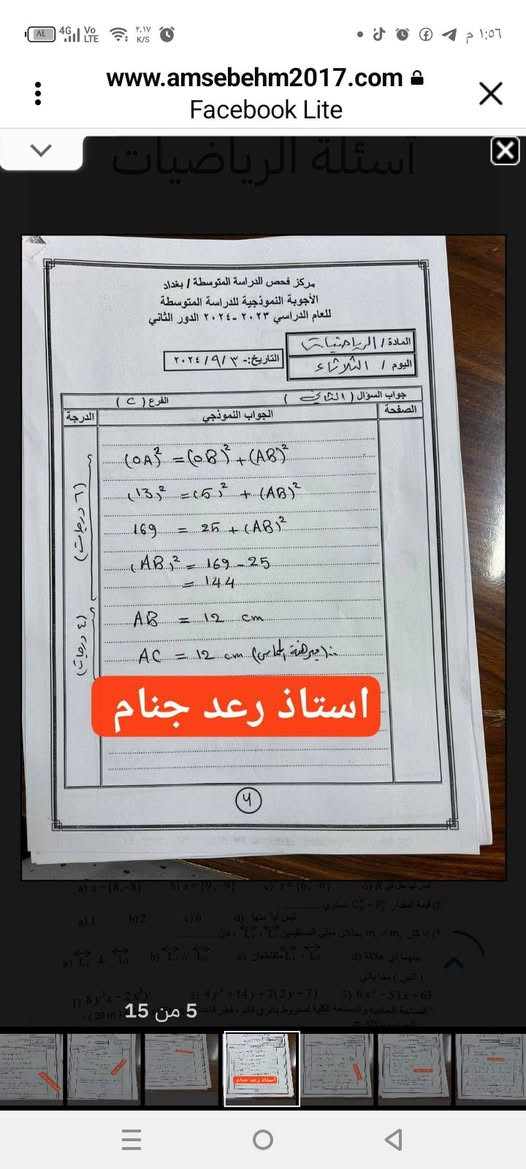 4G Vo LTE ٢,١٧ K/S ١:٥٦ م
www.amsebehm2017.com
Facebook Lite
أسئلة الرياضيات
مركز فحص الدراسة المتوسطة / بغداد
الأجوبة النموذجية للدراسة المتوسطة
للعام الدراسي ٢٠٢٣ - ٢٠٢٤ الدور الثاني
المادة / الرياضيات
اليوم / الثلاثاء
التاريخ:- ٣ / ٩ / ٢٠٢٤
جواب السؤال ( الثاني ) الفرع ( C )
الصفحة الجواب النموذجي الدرجة
(OA)² = (OB)² + (AB)²
(13)² = (5)² + (AB)²
169 = 25 + (AB)²
(AB)² = 169 - 25
= 144
AB = 12 cm
AC = 12 cm
(٦ درجات)
(٤ درجات)
استاذ رعد جنام
a) s={8,-8}
a) 1 b) 2 c) 6 d) ليس أيا منها
5 من 15
استاذ رعد جنام